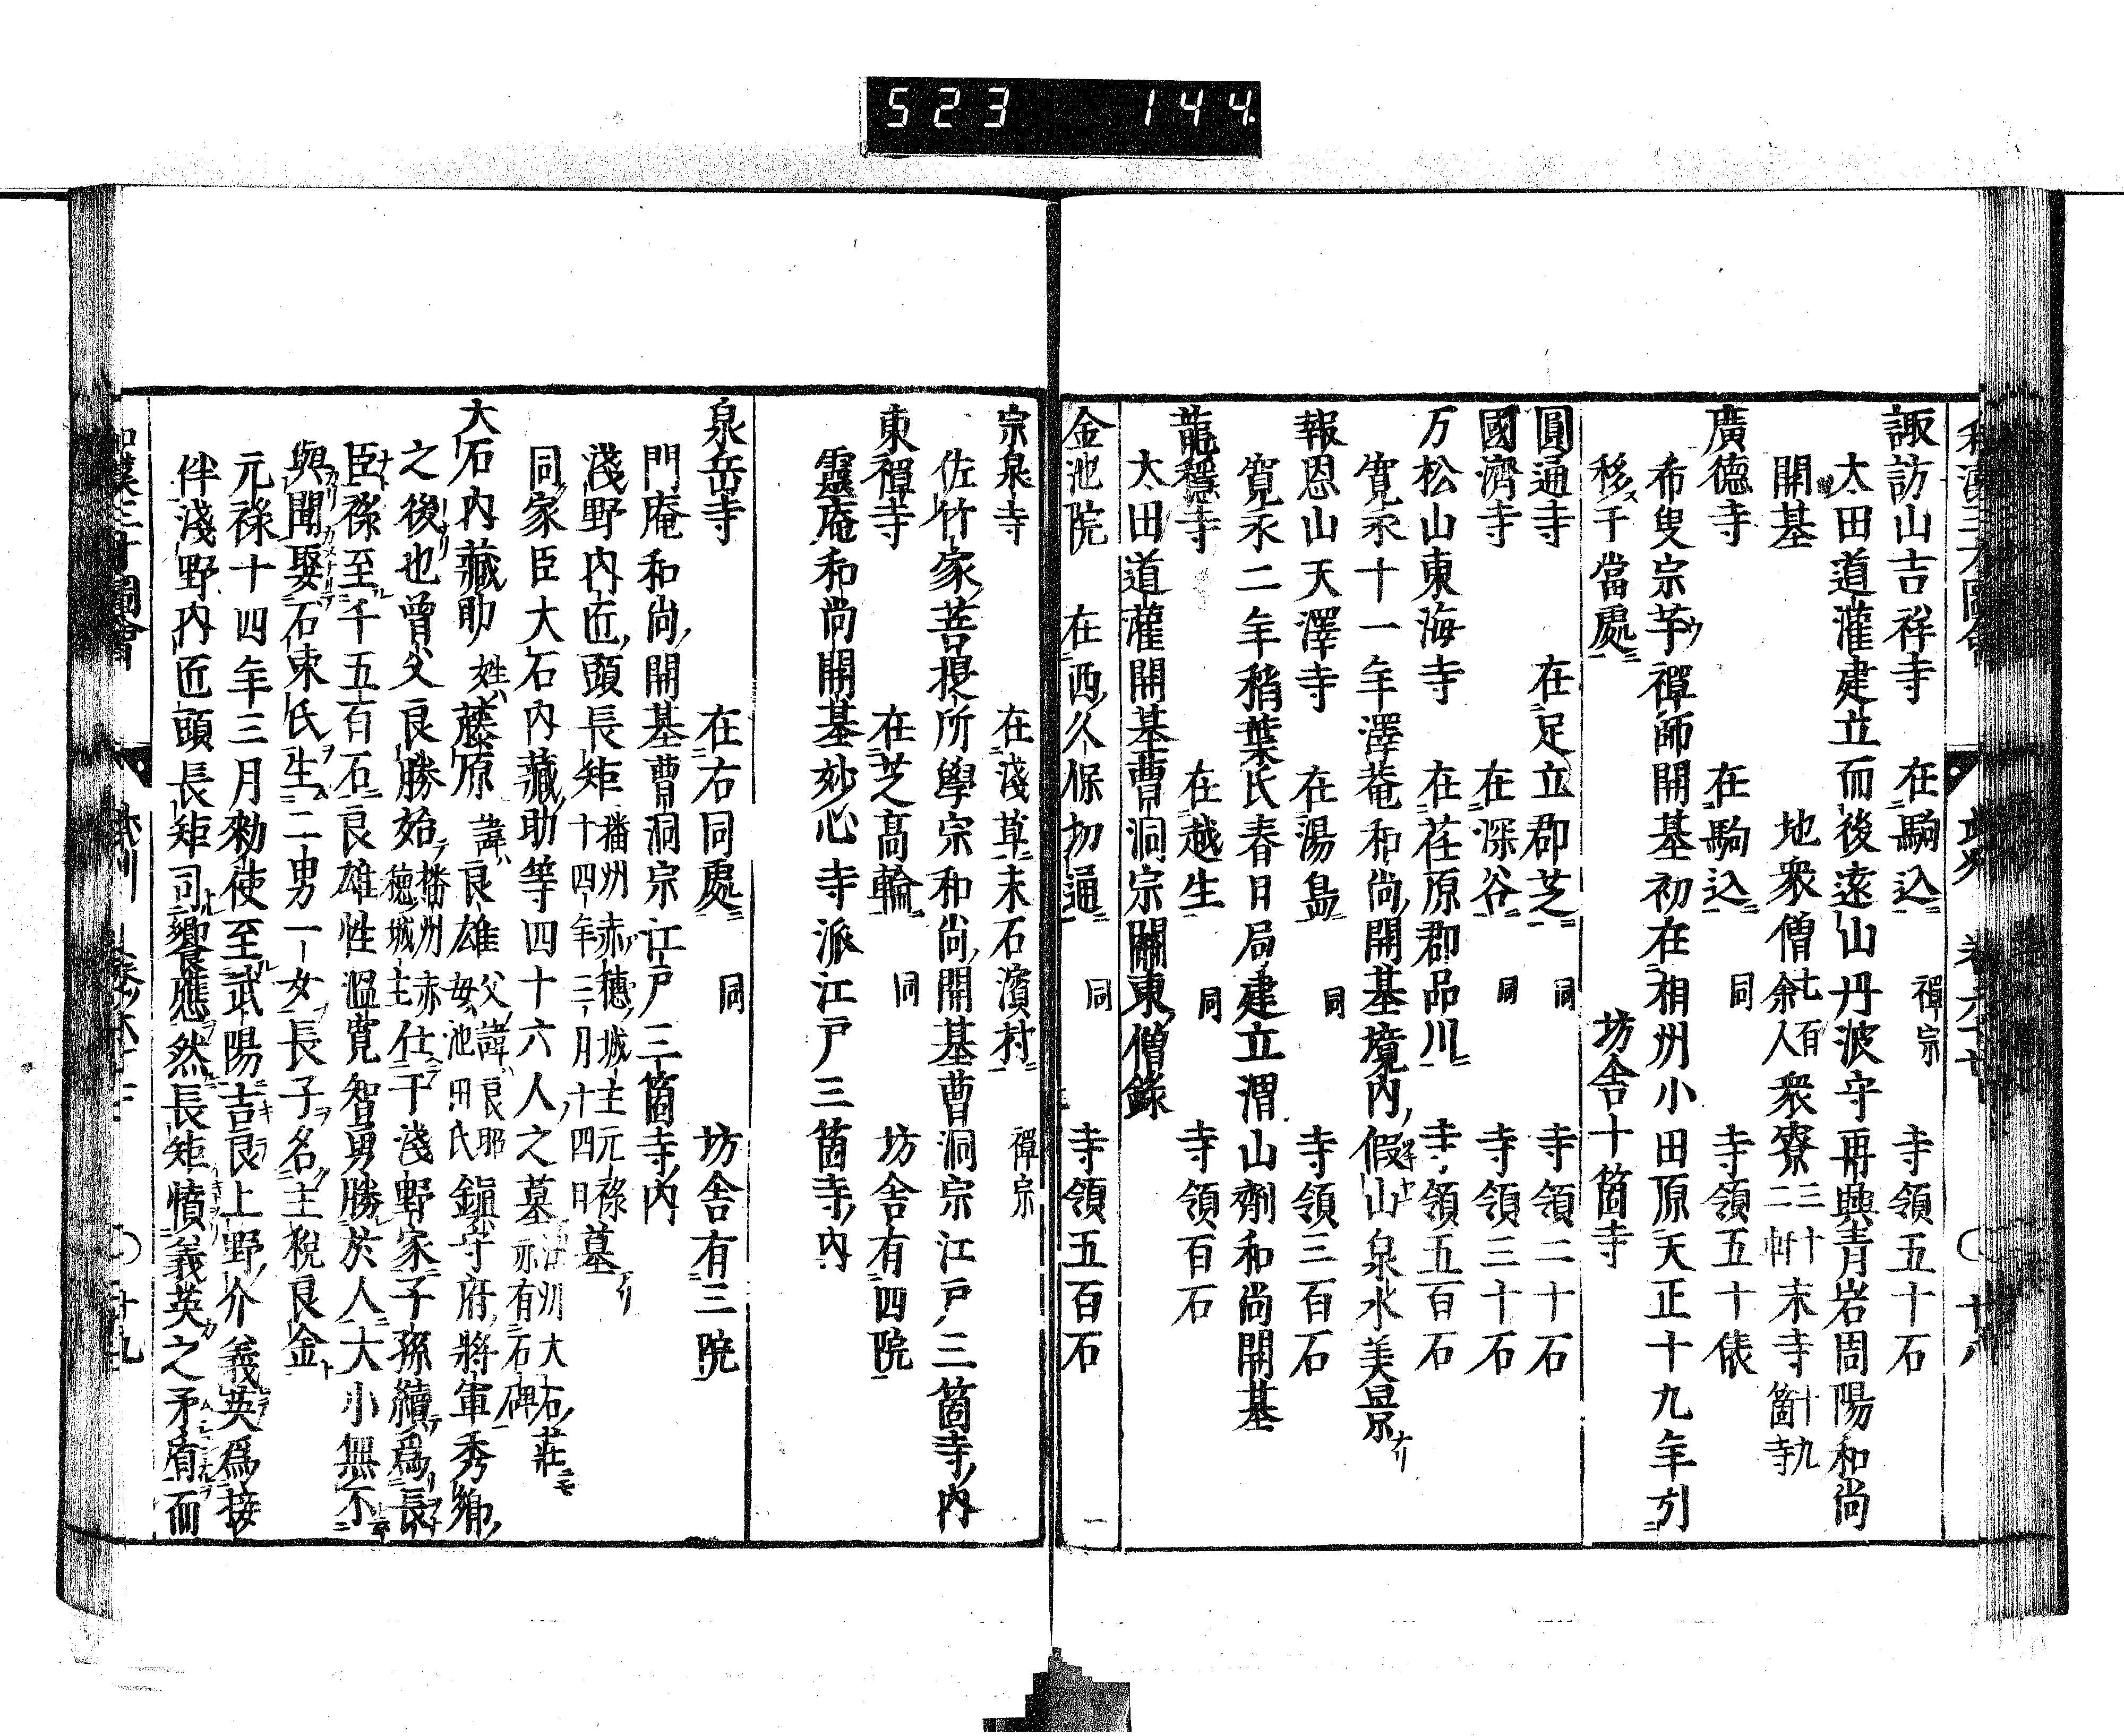 523 144
諏訪山吉祥寺 在駒込 禪宗 寺領五十石
太田道灌建立而後遠山丹波守再興青岩周陽和尚
開基 地衆僧七百余人衆寮三十二軒末寺十九箇寺
廣德寺 在駒込 同 寺領五十俵
希叟宗芋禪師開基初在相州小田原天正十九年引
移于當處 坊舎十箇寺
圓通寺 在足立郡芝 同 寺領二十石
國濟寺 在深谷 同 寺領三十石
万松山東海寺 在荏原郡品川 寺領五百石
寛永十一年澤菴和尚開基境内假山泉水美景
報恩山天澤寺 在湯島 同 寺領三百石
寛永二年稻葉氏春日局建立渭山劑和尚開基
龍穩寺 在越生 同 寺領百石
太田道灌開基曹洞宗關東僧錄
金池院 在西久保切通 同 寺領五百石
宗泉寺 在淺草末石濱村 禪宗
佐竹家菩提所學宗和尚開基曹洞宗江戸三箇寺内
東禪寺 在芝髙輪 同 坊舎有四院
靈庵和尚開基妙心寺派江戸三箇寺内
泉岳寺 在右同處 同 坊舎有三院
門庵和尚開基曹洞宗江戸三箇寺内
淺野内匠頭長矩播州赤穗城主元祿十四年三月十四日墓
同家臣大石内藏助等四十六人之墓 大石莊亦有石碑
大石内藏助 姓藤原 諱良雄 父諱良昭母池田氏 鎭守府將軍秀郷
之後也曾父良勝始播州赤穗城主仕于淺野家子孫續爲長
臣祿至千五百石良雄性溫寛智勇勝於人大小無不
與聞娶石束氏生二男一女長子名主税良金
元祿十四年三月勅使至武陽吉良上野介義英爲接
伴淺野内匠頭長矩司饗應然長矩憤義英之矛盾而